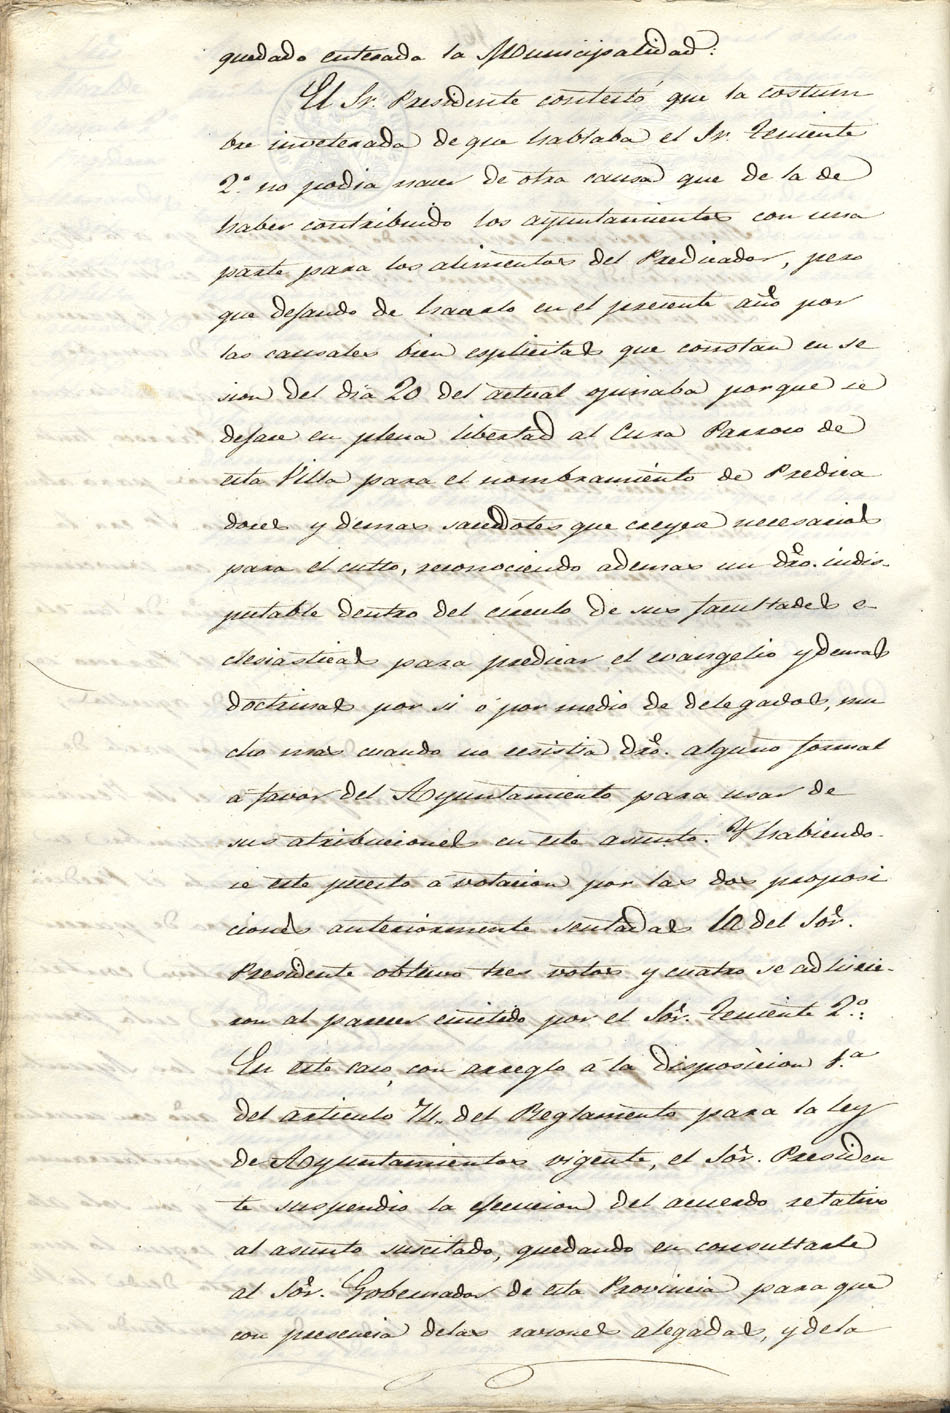 quedado enterada la Municipalidad:
El Sr. Presidente contestó que la costum
bre inveterada de que hablaba el Sr. Teniente
2.º no podia nacer de otra causa que de la de
haber contribuido los ayuntamientos con una
parte para los alimentos del Predicador, pero
que dejando de hacerlo en el presente año por
las causales bien esplicitas que constan en se
sion del dia 20 del actual opinaba porque se
dejase en plena libertad al Cura Parroco de
esta Villa para el nombramiento de Predica
dores y demas sacerdotes que creyese necesarios
para el culto, reconociendo ademas un dro. indis-
putable dentro del circulo de sus facultades e
clesiasticas para predicar el evangelio y demas
doctrinas por si ó por medio de delegados, mu
cho mas cuando no ecsistia dro. alguno formal
á favor del Ayuntamiento para usar de
sus atribuciones en este asunto. Y habiendo-
se este puesto á votacion por las dos proposi
ciones anteriormente sentadas la del Sor.
Presidente obtuvo tres votos y cuatro se adhirie-
ron al parecer emitido por el Sor. Teniente 2.º:
En este caso, con arreglo á la disposicion 1.ª
del articulo 74. del Reglamento para la ley
de Ayuntamientos vigente, el Sor. Presiden
te suspendio la ejecucion del acuerdo relativo
al asunto suscitado, quedando en consultarle
al Sor. Gobernador de esta Provincia para que
con presencia delas razones alegadas, y dela